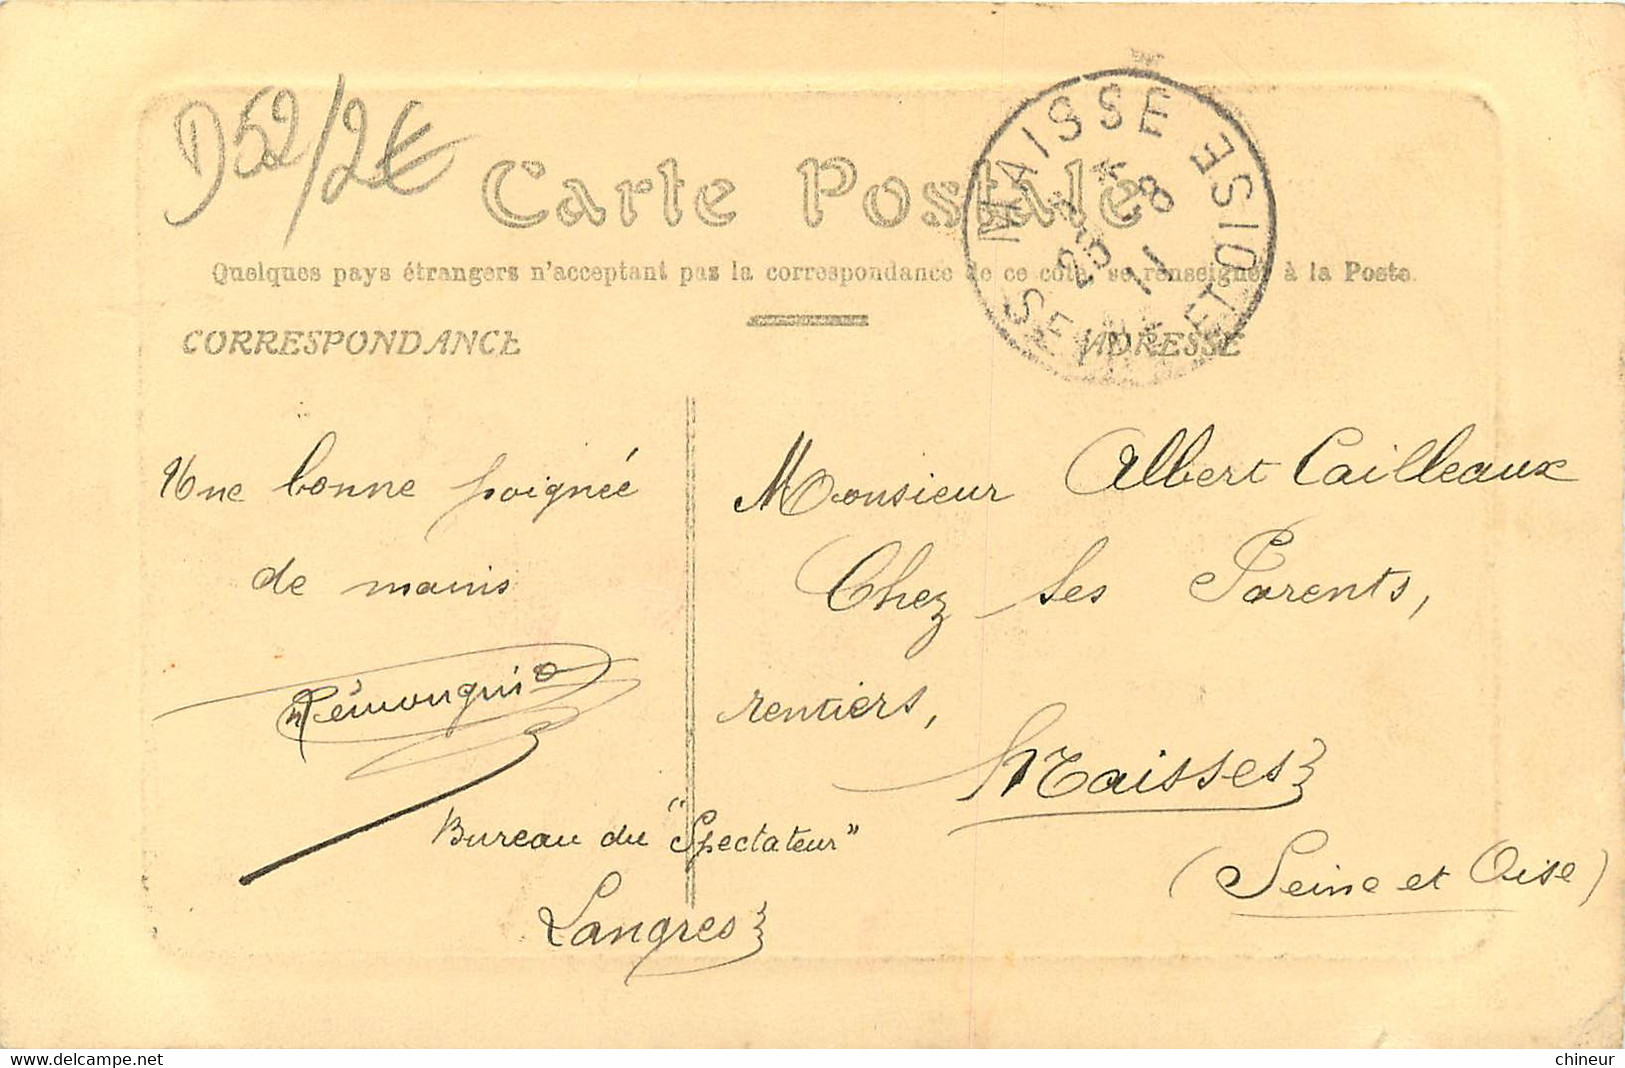 D52/2€
Carte Postale
Quelques pays étrangers n'acceptant pas la correspondance de ce côté, se renseigner à la Poste.
CORRESPONDANCE
ADRESSE
MAISSE
SEINE ET OISE
25 - 8
11
Une bonne poignée
de mains
Rémongin
Bureau du "Spectateur"
Langres
Monsieur Albert Cailleaux
Chez ses Parents,
rentiers,
Maisses
(Seine et Oise)
www.delcampe.net
chineur